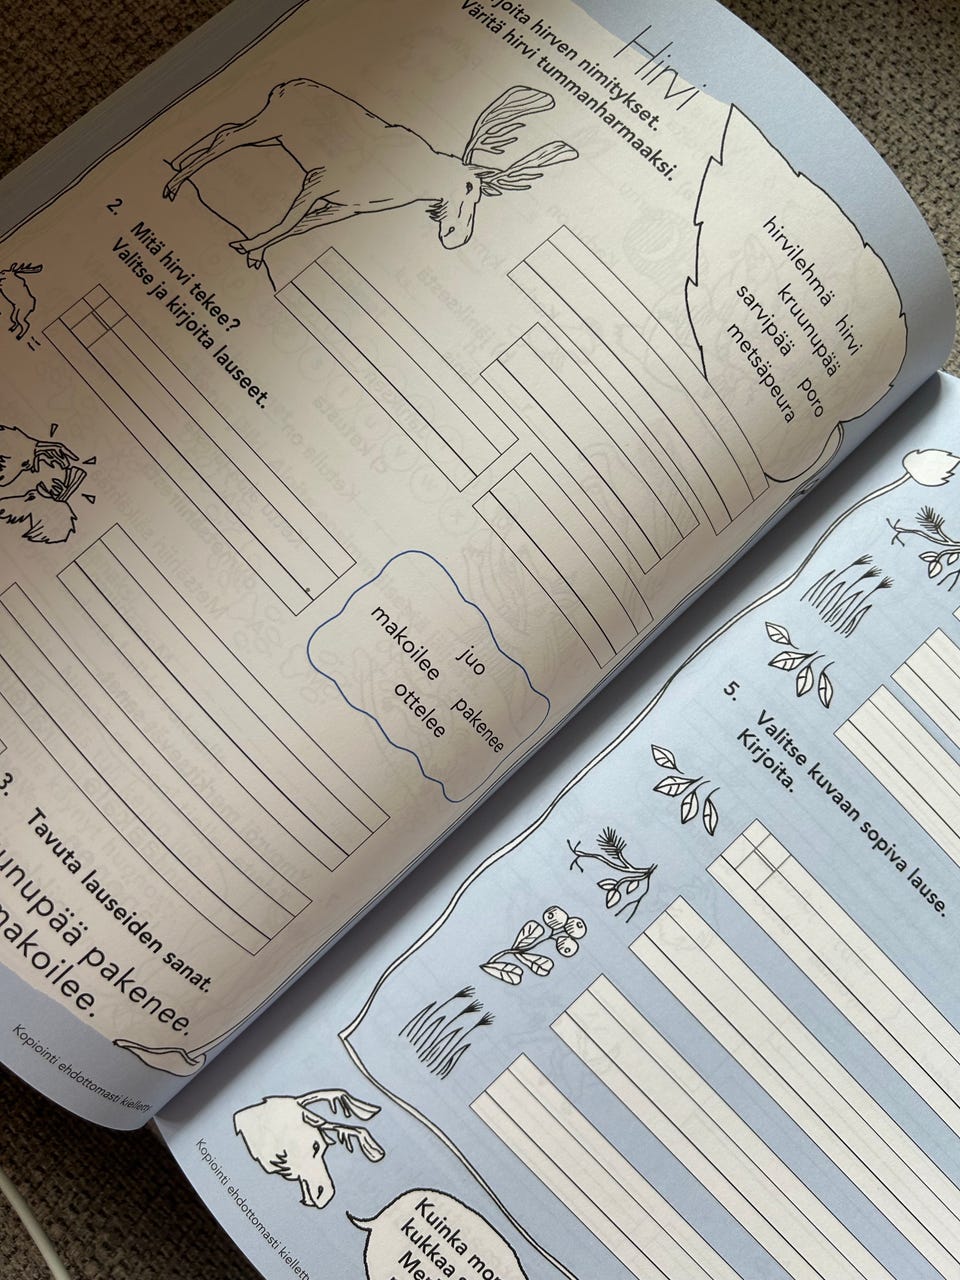 Hirvi
joita hirven nimitykset.
Väritä hirvi tummanharmaaksi.
hirvilehmä hirvi
kruunupää
sarvipää poro
metsäpeura
2. Mitä hirvi tekee?
Valitse ja kirjoita lauseet.
juo
makoilee
pakenee
ottelee
3. Tavuta lauseiden sanat.
unupää pakenee.
makoilee.
Kopiointi ehdottomasti kielletty
5. Valitse kuvaan sopiva lause.
Kirjoita.
Kuinka mon
kukkaa
Kopiointi ehdottomasti kielletty